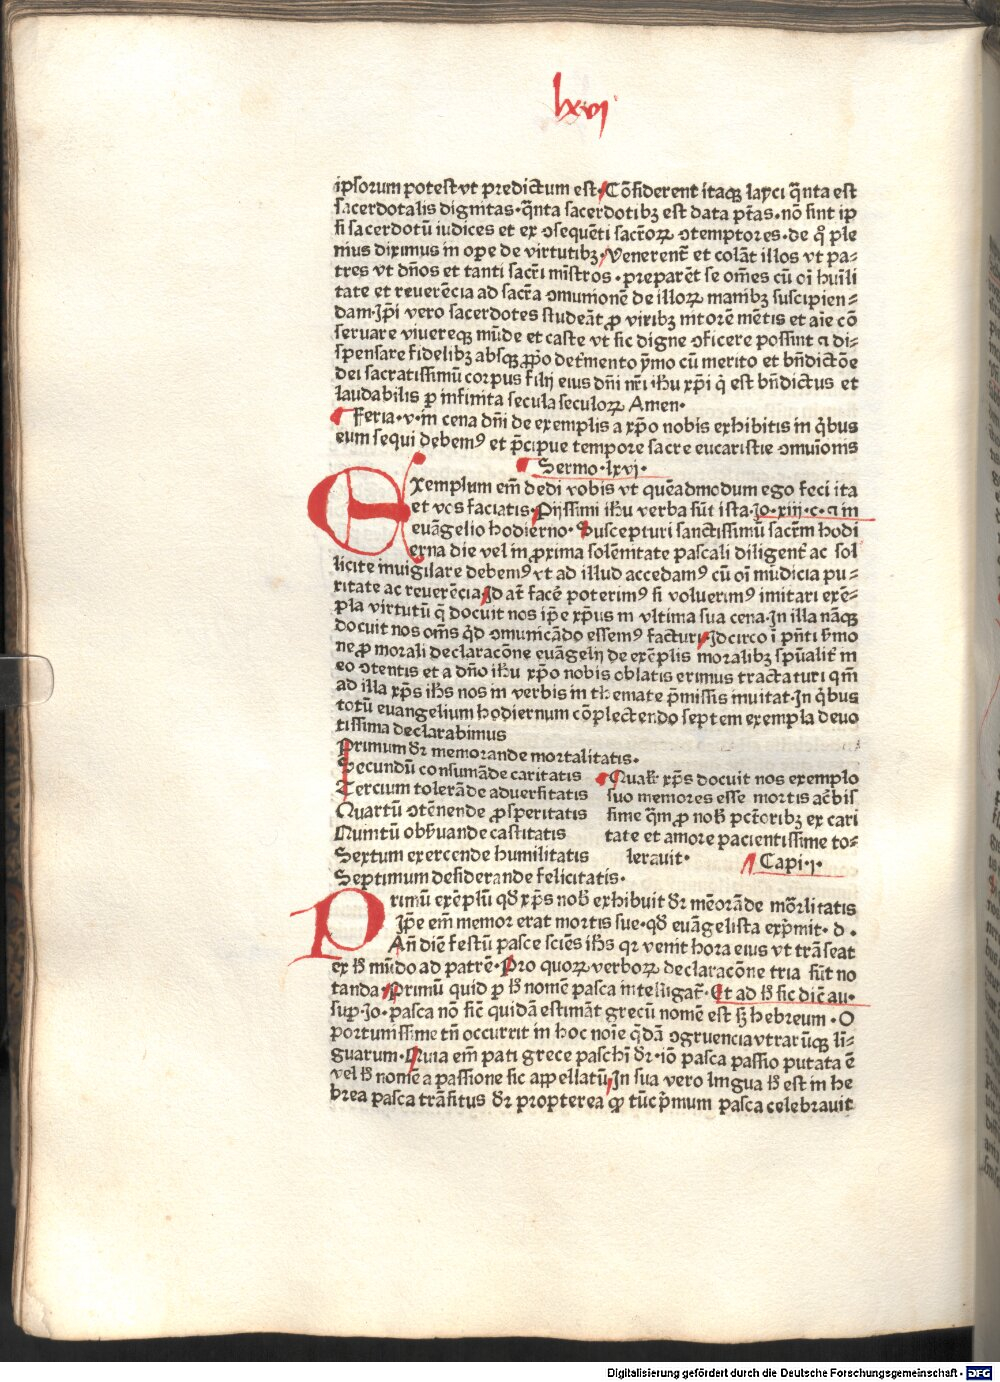 lxvi
ipsorum potest vt predictum est. Cōsiderent itaqꝫ layci q̄nta est
sacerdotalis dignitas. q̄nta sacerdotibꝫ est data pt̄as. nō sint ip
si sacerdotū iudices et ex ɔsequēti sacr̄oꝝ ɔtemptores. de qͦ ple
nius diximus in ope de virtutibꝫ. Venerent̄ et colāt illos vt pa-
tres vt dn̄os et tanti sacr̄i mīstros. preparēt se om̄es cū oī huīli
tate et reuerēcia ad sacr̄a ɔmunionē de illoꝝ manibꝫ suscipien-
dam. Ip̄i vero sacerdotes studeāt ꝓ viribꝫ nitorē mētis et aīe cō
seruare viuereqꝫ mūde et caste vt sic digne ɔficere possint ⁊ di-
spensare fidelibꝫ absqꝫ ꝓp̄o det̄mento ymo cū merito et bn̄dictōe
dei sacratissimū corpus filij eius dn̄i nr̄i ihū xp̄i q̇ est bn̄dictus et
laudabilis ꝑ infinita secula seculoꝝ Amen.
Feria. v. in cena dn̄i de exemplis a xp̄o nobis exhibitis in q̇bus
eum sequi debemꝰ et p̄cipue tempore sacre eucaristie ɔmuīonis
Sermo. lxvi.
Exemplum em̄ dedi vobis vt quēadmodum ego feci ita
et vos faciatis. Pijssimi ihū verba sūt ista. Jo. xiij. c. ⁊ in
euāgelio hodierno. Suscepturi sanctissimū sacr̄m hodi
erna die vel in ꝓxima solēnitate pascali diligent̄ ac sol
licite inuigilare debemꝰ vt ad illud accedamꝰ cū oī mūdicia pu-
ritate ac reuerēcia. Id at̄ facē poterimꝰ si voluerimꝰ imitari exē-
pla virtutū q̄ docuit nos ip̄e xp̄us in vltima sua cena. In illa nāqꝫ
docuit nos om̄s qd̄ ɔmunicādo essemꝰ facturi. Idcirco ī pn̄ti ẜmo
ne ꝓ morali declaracōne euāgelij de exēplis moralibꝫ spūalit̄ in
eo ɔtentis et a dn̄o ihū xp̄o nobis oblatis erimus tractaturi qm̄
ad illa xp̄s ihs nos in verbis in themate p̄missis inuitat. In q̇bus
totū euangelium hodiernum cōplectendo septem exempla deuo
tissima declarabimus
Primum dr̄ memorande mortalitatis.
Secundū consumāde caritatis
Tercium tolerāde aduersitatis
Quartū ɔtēnende ꝓsperitatis
Quintū obẜuande castitatis
Sextum exercende humilitatis
Septimum desiderande felicitatis.
Quasi xp̄s docuit nos exemplo
suo memores esse mortis acerbis
sime qm̄ ꝓ nob̄ pctōribꝫ ex cari
tate et amore pacientissime to-
lerauit. Capi. j.
Primū exēplū qd̄ xp̄s nob̄ exhibuit dr̄ mēorāde mōrlitatis
Ip̄e em̄ memor erat mortis sue. qd̄ euāgelista exp̄mit. d.
Añ diē festū pasce sciēs ihs qr venit hora eius vt trāseat
ex h̄ mūdo ad patrē. Pro quoꝝ verboꝝ declaracōne tria sūt no
tanda. Primū quid ꝑ h̄ nomē pasca intelligat̄. Et ad h̄ sic diē au.
suꝑ. Jo. pasca nō sic̄ quidā estimāt grecū nomē est sꝫ hebreum. O
portunissime tn̄ occurrit in hoc noīe q̄dā ɔgruencia vtrarūqꝫ li-
guarum. Quia em̄ pati grece paschī dr̄. iō pasca passio putata ē
vel h̄ nomē a passione sic appellatū. In sua vero lingua h̄ est in he
brea pasca trāsitus dr̄ propterea ꝙ tūc p̄mum pasca celebrauit
Digitalisierung gefördert durch die Deutsche Forschungsgemeinschaft - DFG